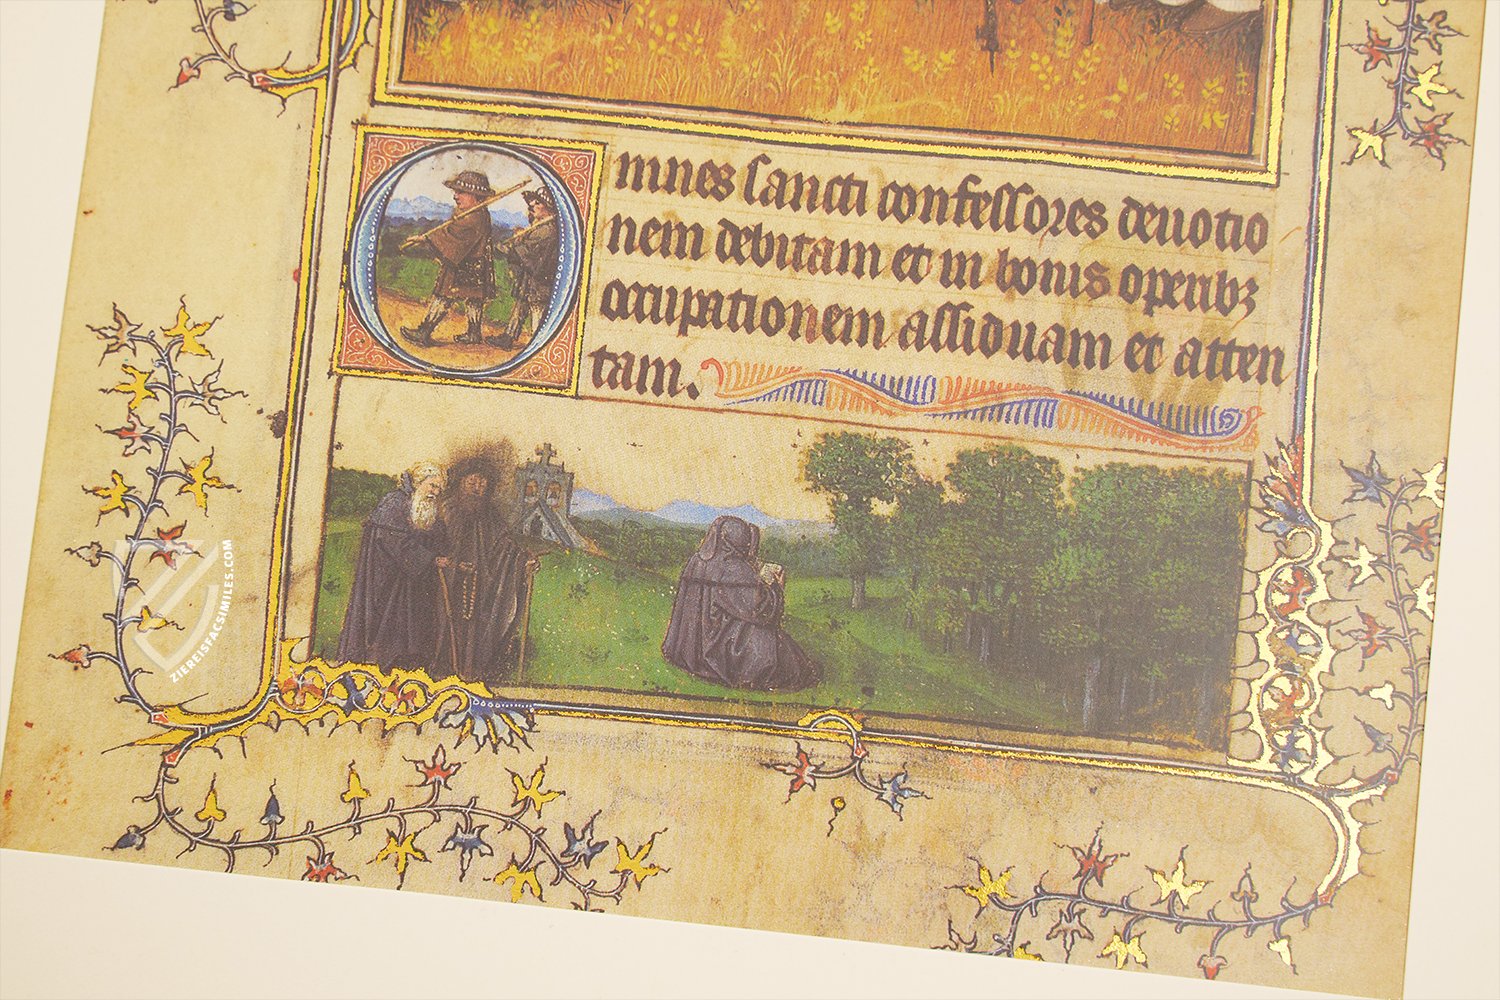 Omnes sancti confessores deuotio
nem debitam et in bonis operibꝫ
occupationem assiduam et atten
tam.
ZIEREISFACSIMILES.COM